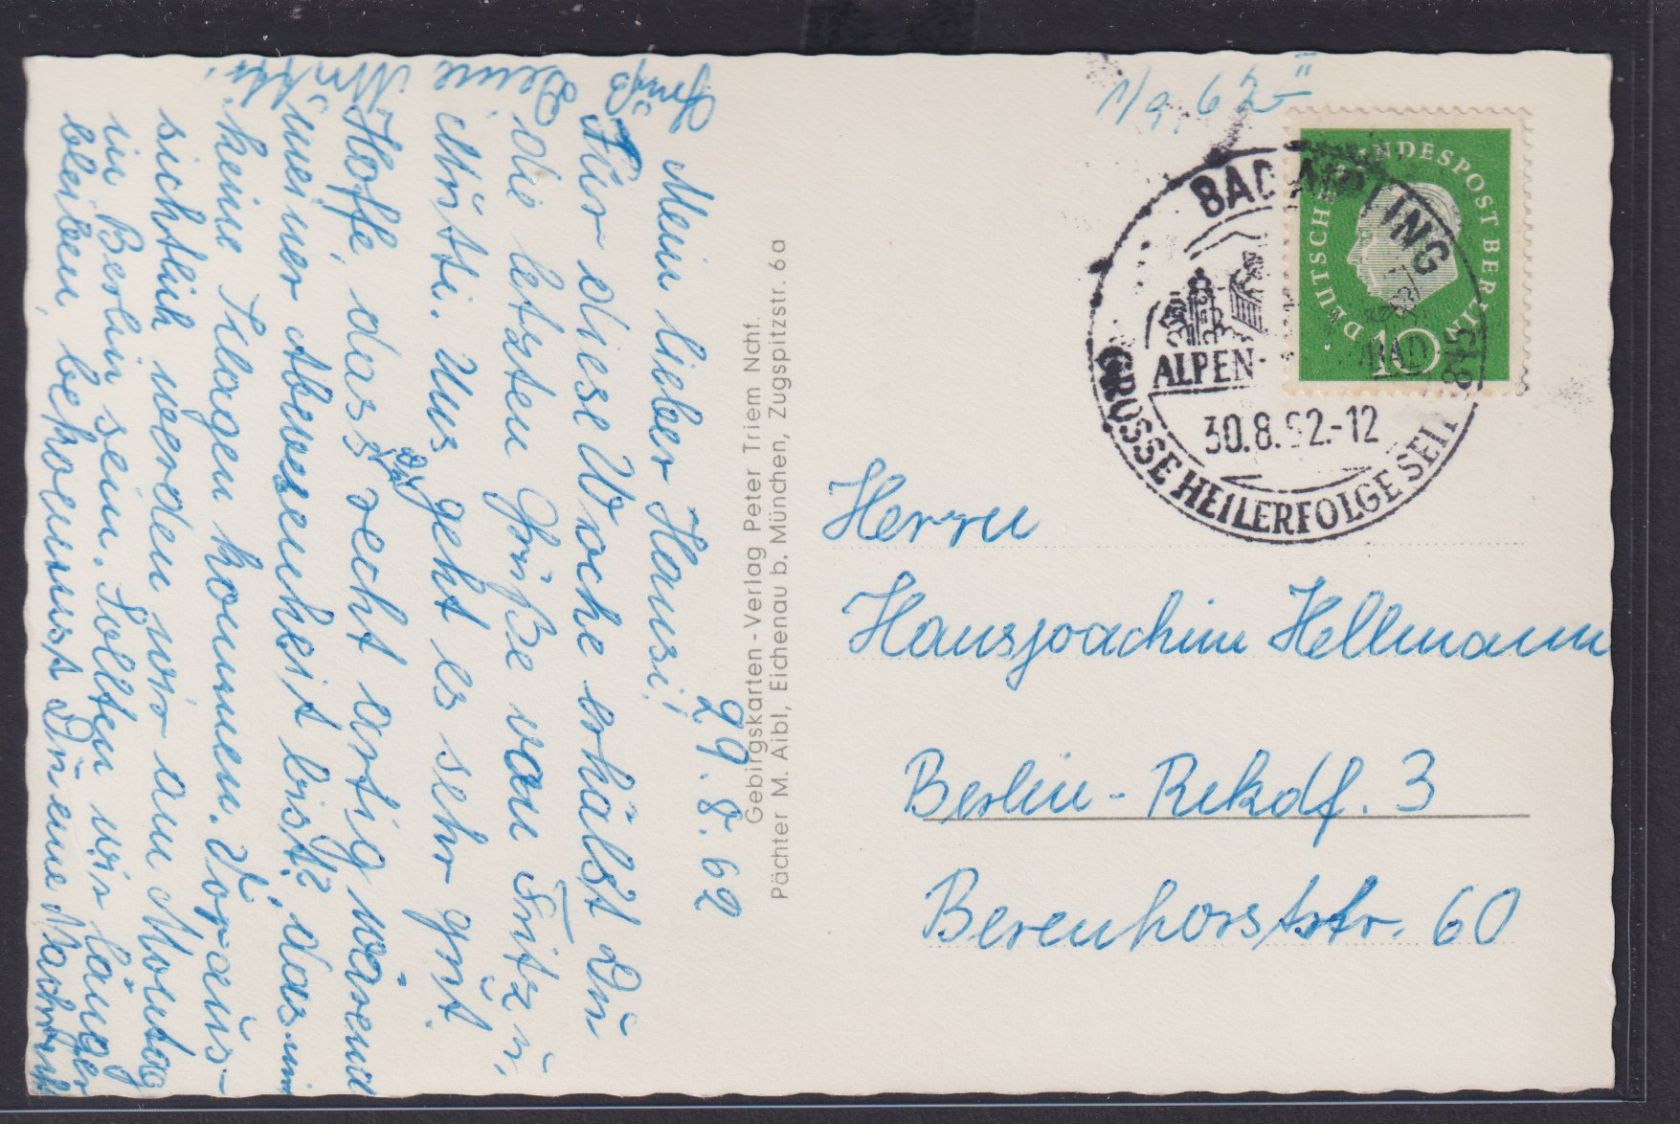 29.8.62
Mein lieber Hansi!
Für diese Woche erhälst Du
die letzten Grüße von Fritz u.
Christi. Uns geht es sehr gut.
Hoffe, dass Du recht artig wärend
meiner Abwesenheit bist, das mir
keine Klagen kommen. Voraus-
sichtlich werden wir am Montag
in Berlin sein. Sollten wir länger
bleiben, bekommst Du eine Nachricht
Gruß
Deine
Mutter
Gebirgskarten - Verlag Peter Triem Nchf.
Pächter M. Aibl, Eichenau b. München, Zugspitzstr. 6a
1/9. 62 II
DEUTSCHE BUNDESPOST BERLIN
10
BAD AIBLING
ALPEN-
30.8.62.-12
GROSSE HEILERFOLGE SEIT
Herrn
Hansjoachim Hellmann
Berlin-Rekdf. 3
Berenhorststr. 60